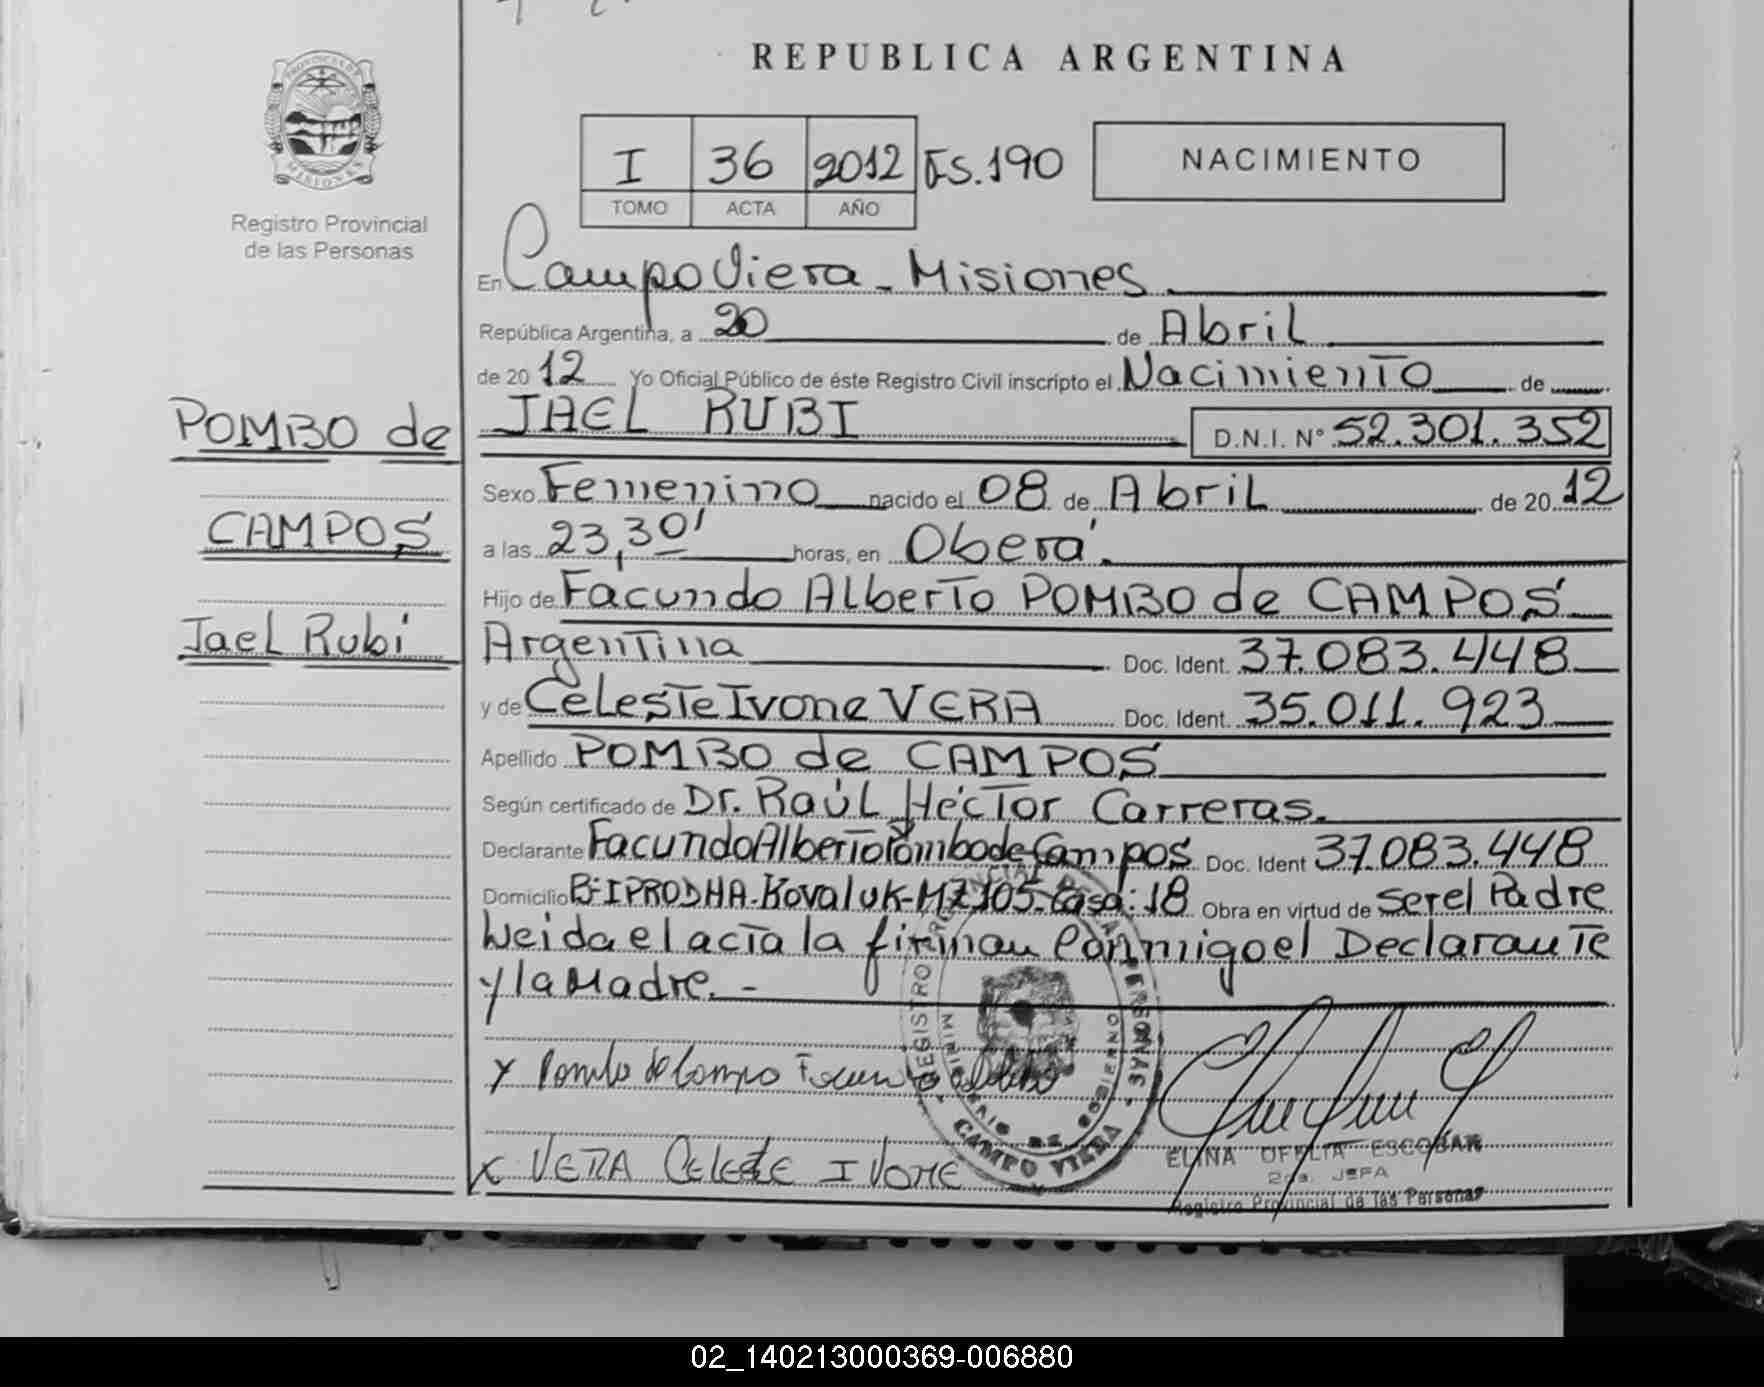 REPUBLICA ARGENTINA
PROVINCIA DE
MISIONES
Registro Provincial
de las Personas
I 36 2012 Fs. 190
TOMO ACTA AÑO
NACIMIENTO
En Campo Viera - Misiones
República Argentina, a 20 de Abril
de 20 12 Yo Oficial Público de éste Registro Civil inscripto el Nacimiento de
JAEL RUBI D.N.I. N° 52.301.352
POMBO de
CAMPOS
Jael Rubí
Sexo Femenino nacido el 08 de Abril de 20 12
a las 23,30' horas, en Oberá.
Hijo de Facundo Alberto POMBO de CAMPOS
Argentina Doc. Ident. 37.083.448
y de Celeste Ivone VERA Doc. Ident. 35.011.923
Apellido POMBO de CAMPOS
Según certificado de Dr. Raúl Héctor Carreras.
Declarante Facundo Alberto Pombo de Campos Doc. Ident 37.083.448
Domicilio B: IPRODHA-Kovaluk-Mz 105-Casa: 18 Obra en virtud de ser el Padre
Leida el acta la firman Conmigo el Declarante
y la Madre. -
REGISTRO PROVINCIAL DE LAS PERSONAS
MINISTERIO DE GOBIERNO
CAMPO VIERA
x Pombo de Campo Facundo Alberto
x VERA Celeste IVONE
ELINA OFELIA ESCOBAR
2da. JEFA
Registro Provincial de las Personas
02_140213000369-006880